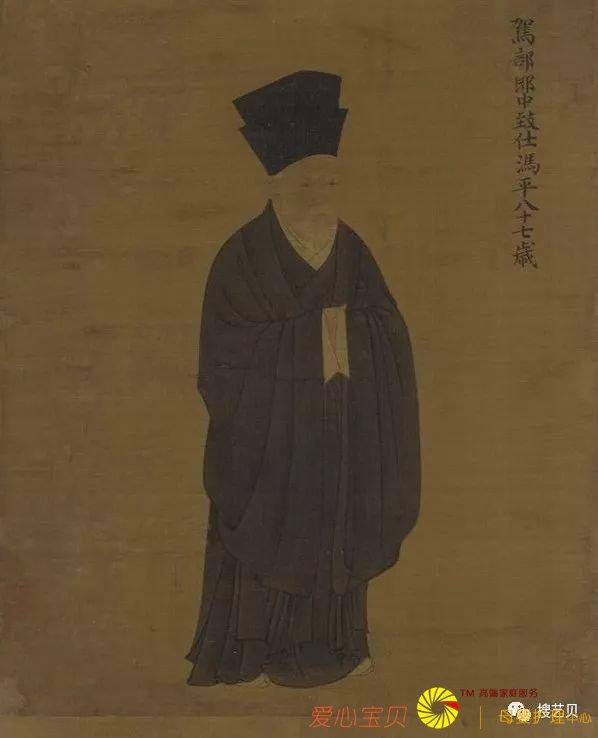 駕部郎中致仕馮平八十七歲
爱心宝贝
TM 高端家庭服务
母婴护理中心
搜芸贝